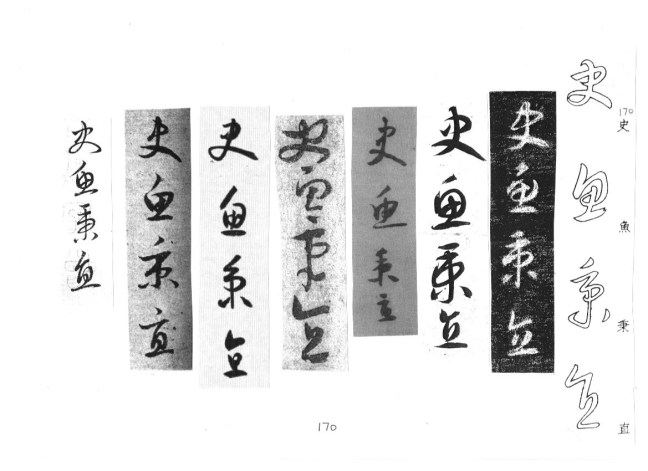 170
史魚秉直
史魚秉直
史魚秉直
史魚秉直
史魚秉直
史魚秉直
史魚秉直
史魚秉直
史魚秉直
170